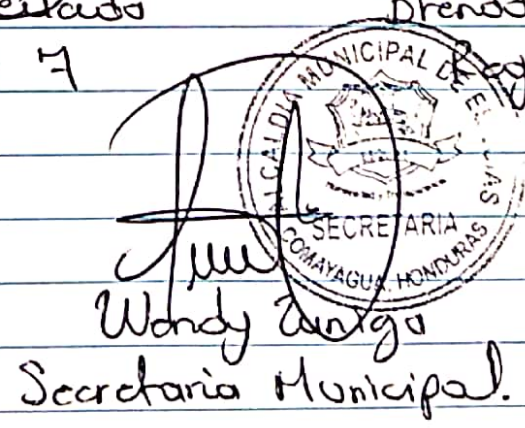 7
ALCALDIA MUNICIPAL DE EL
SECRETARIA
COMAYAGUA, HONDURAS
Wendy Zuniga
Secretaria Municipal.